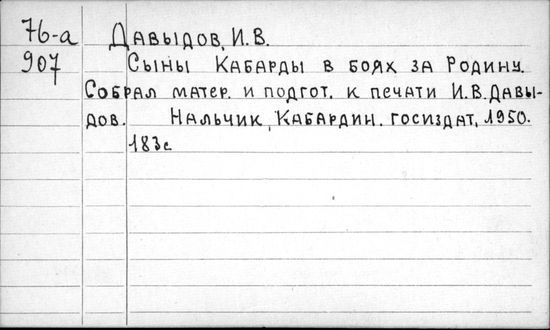 76-а Давыдов, И.В.
907 Сыны Кабарды в боях за Родину.
Собрал матер. и подгот. к печати И.В.Давы-
дов. Нальчик, Кабардин. госиздат, 1950.
183с.